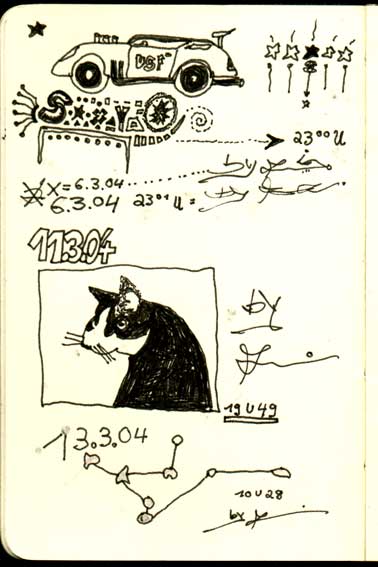 DSF
23⁰⁰ U
X = 6.3.04 by
6.3.04 23⁰¹ U = by
11.3.04
by
19 U 49
13.3.04
10 U 28
by